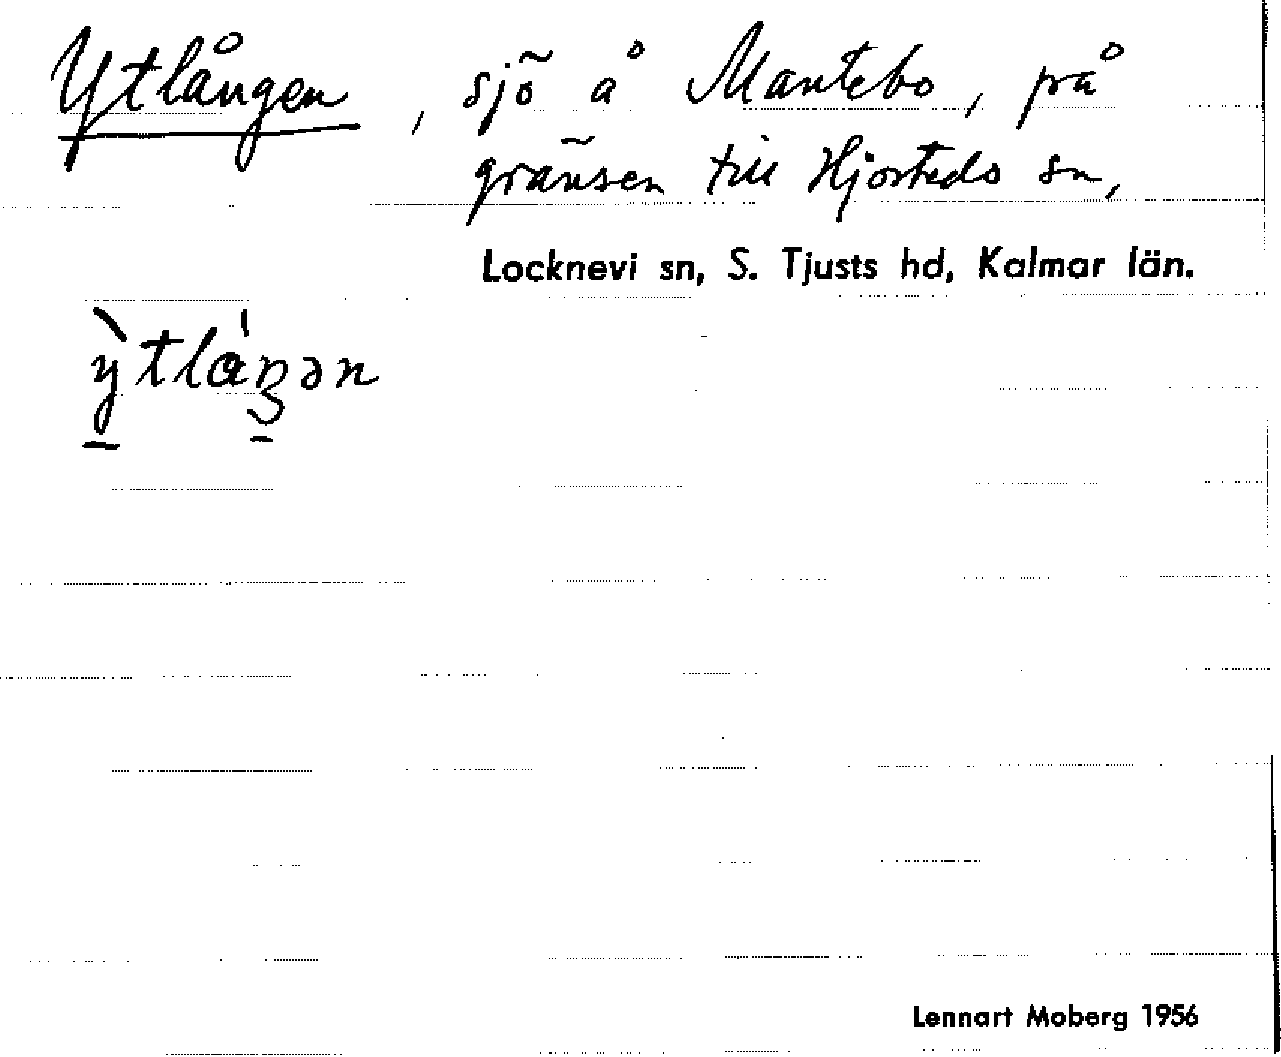 Ytlången, sjö å Mantebo, på
gränsen till Hjorteds sn,
Locknevi sn, S. Tjusts hd, Kalmar län.
Lennart Moberg 1956